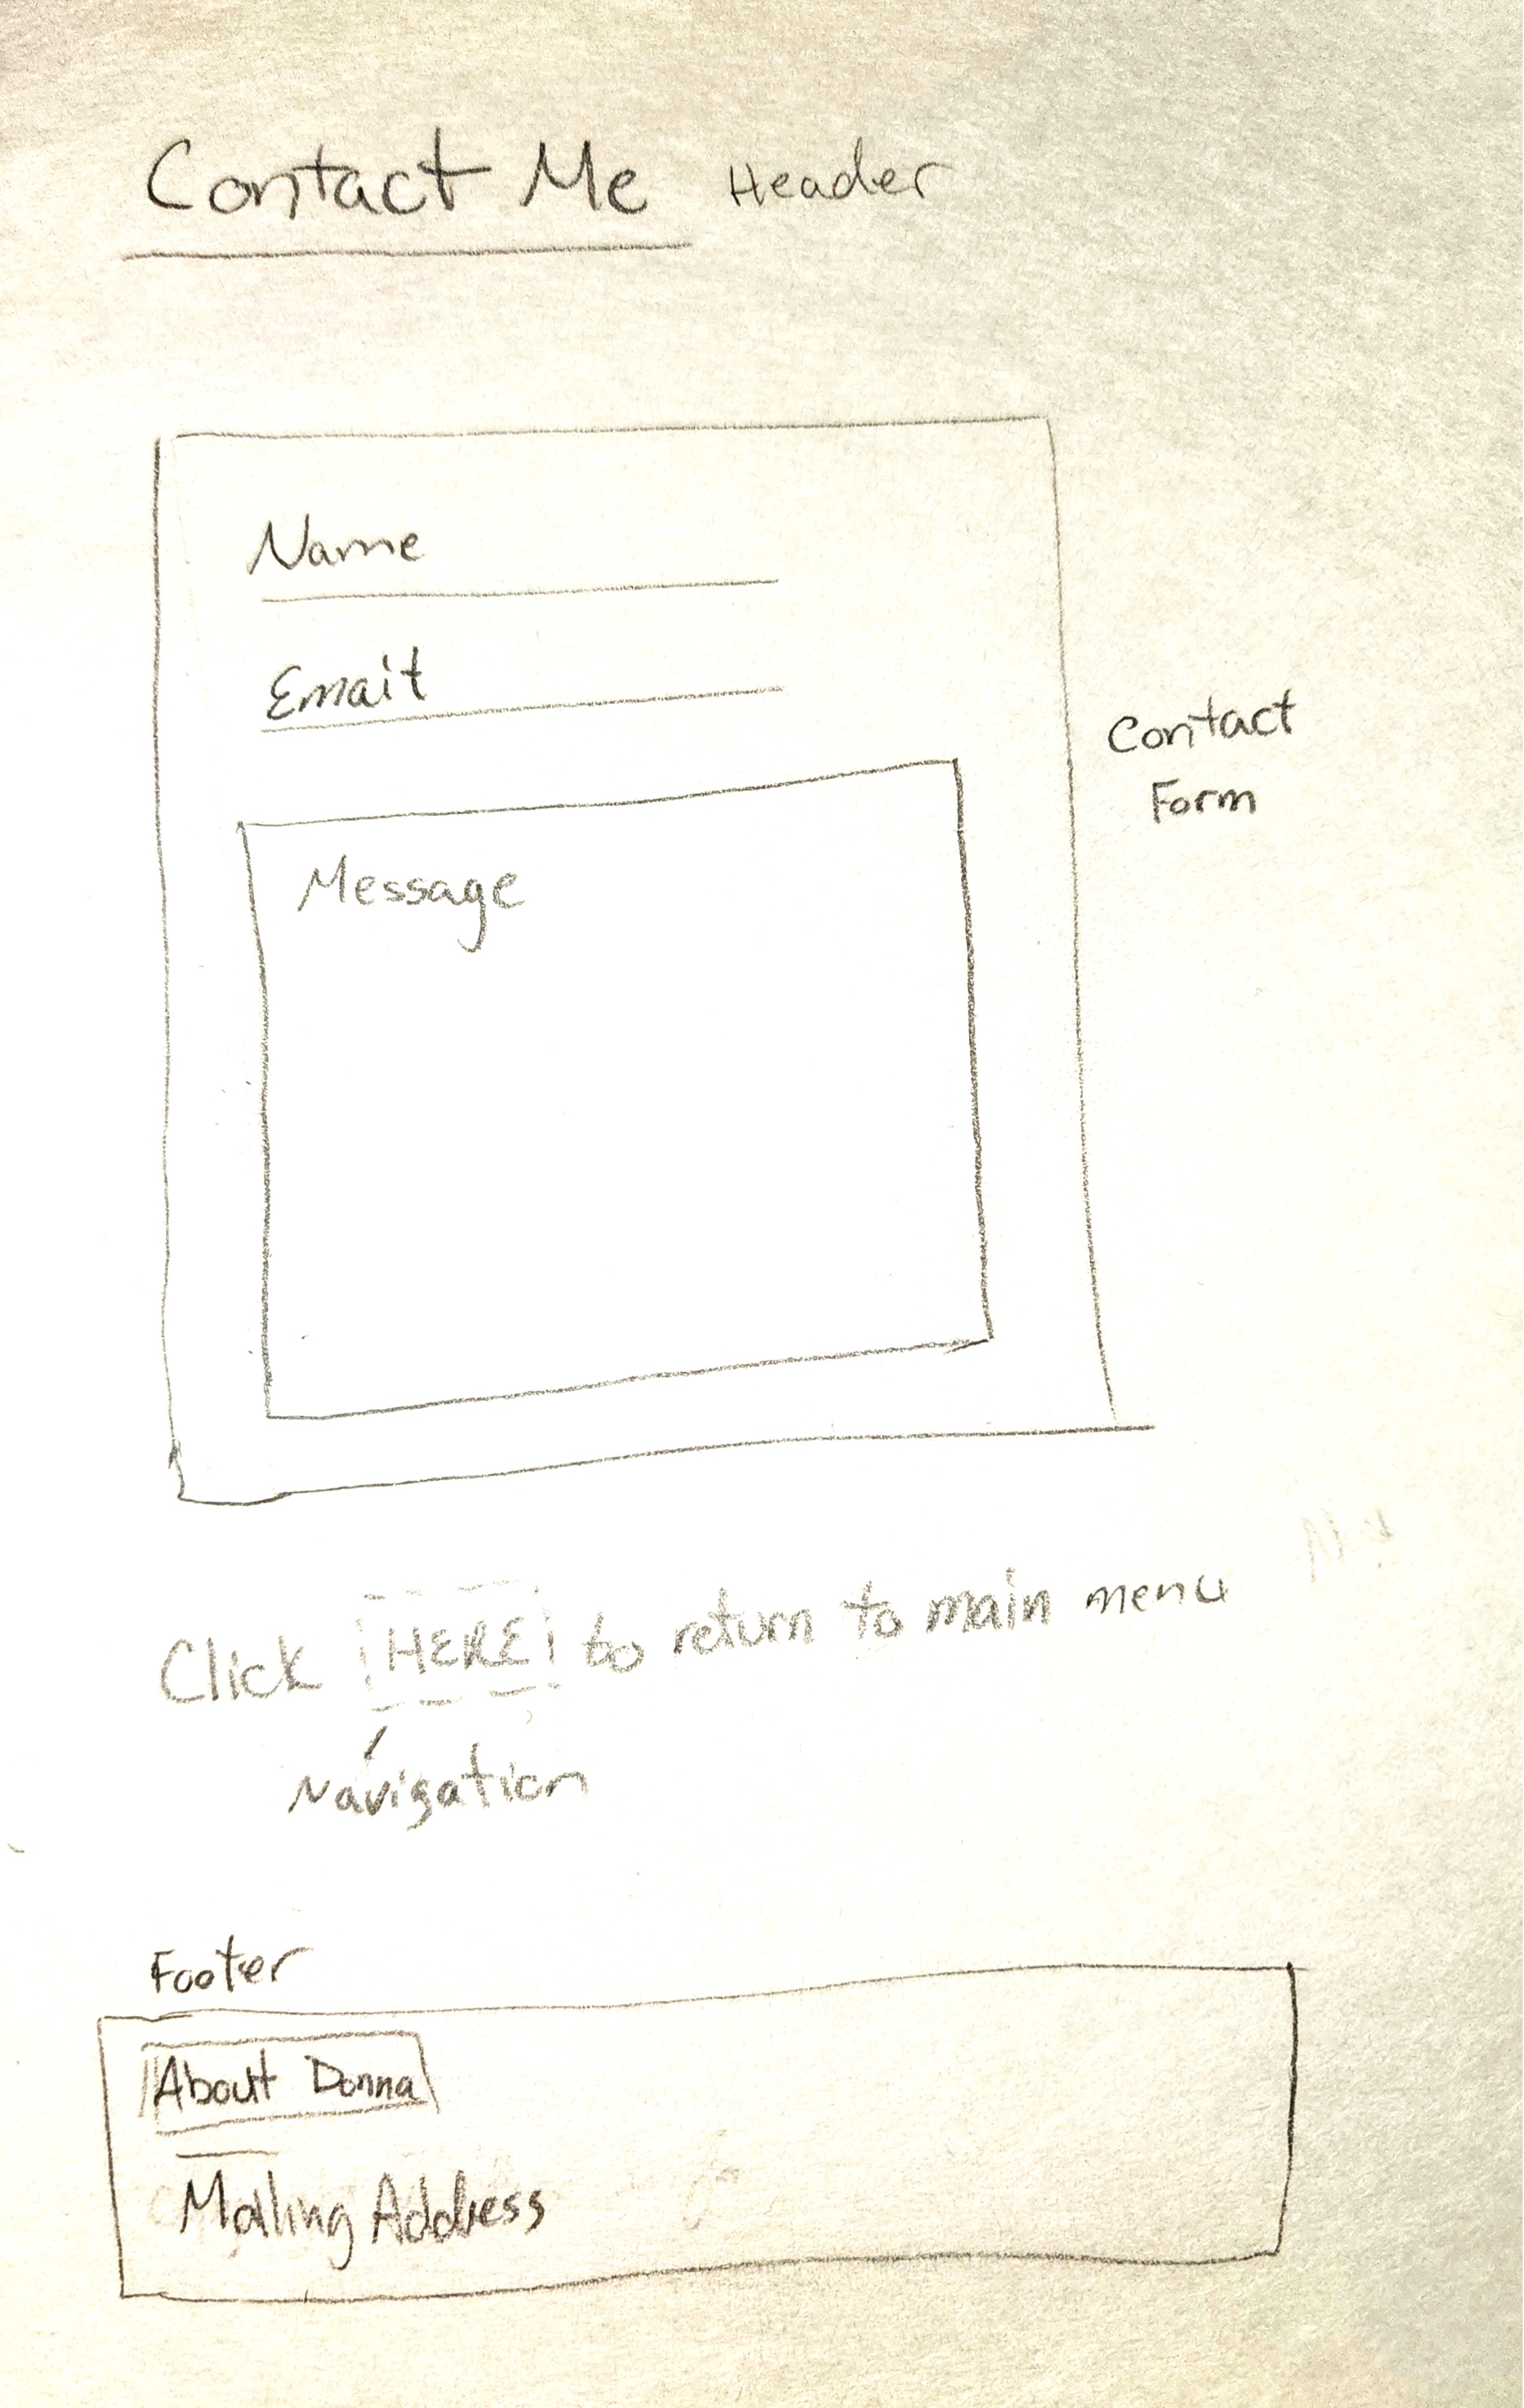 Contact Me Header
Name
Email
Contact
Form
Message
Click HERE to return to main menu
Navigation
Footer
About Donna
Mailing Address